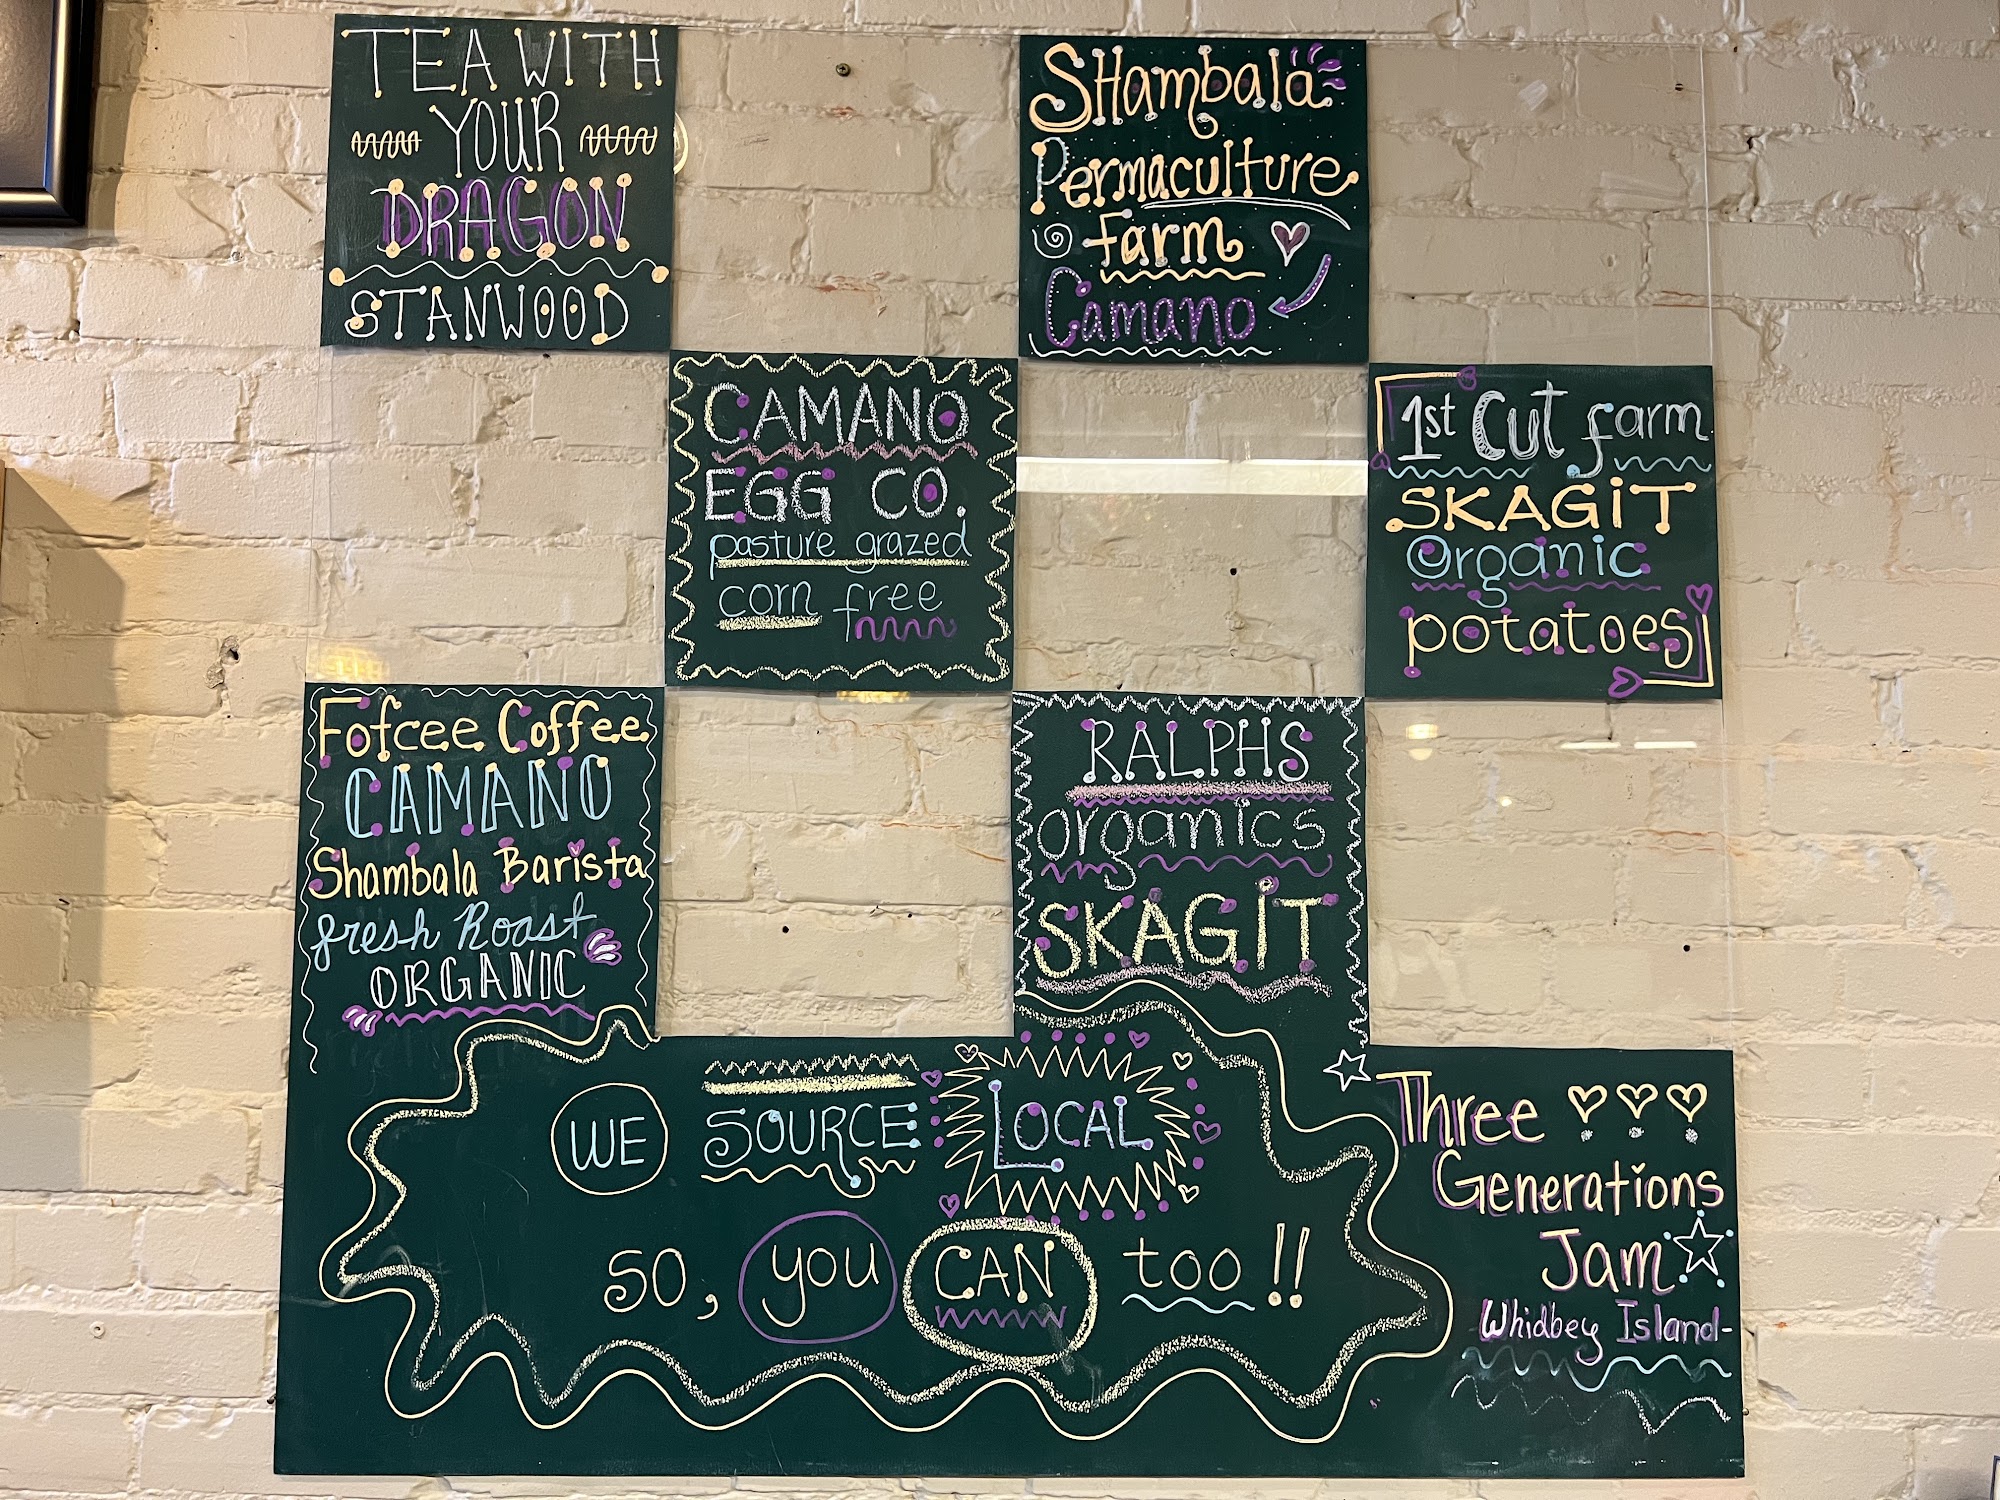 TEA WITH
YOUR
DRAGON
STANWOOD
SHambala
Permaculture
farm
Camano
CAMANO
EGG CO.
pasture grazed
corn free
1st Cut farm
SKAGiT
Organic
potatoes
Fofcee Coffee
CAMANO
Shambala Barista
fresh Roast
ORGANIC
RALPHS
organics
SKAGiT
WE SOURCE LOCAL
so, you CAN too!!
Three
Generations
Jam
Whidbey Island-